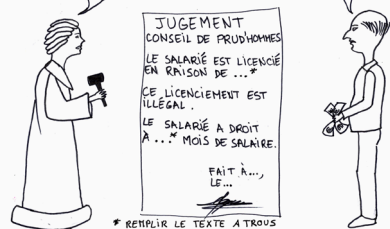 JUGEMENT
CONSEIL DE PRUD'HOMMES
LE SALARIÉ EST LICENCIÉ
EN RAISON DE ...*
CE LICENCIEMENT EST
ILLÉGAL.
LE SALARIÉ A DROIT
À ...* MOIS DE SALAIRE.
FAIT À...,
LE...
* REMPLIR LE TEXTE A TROUS